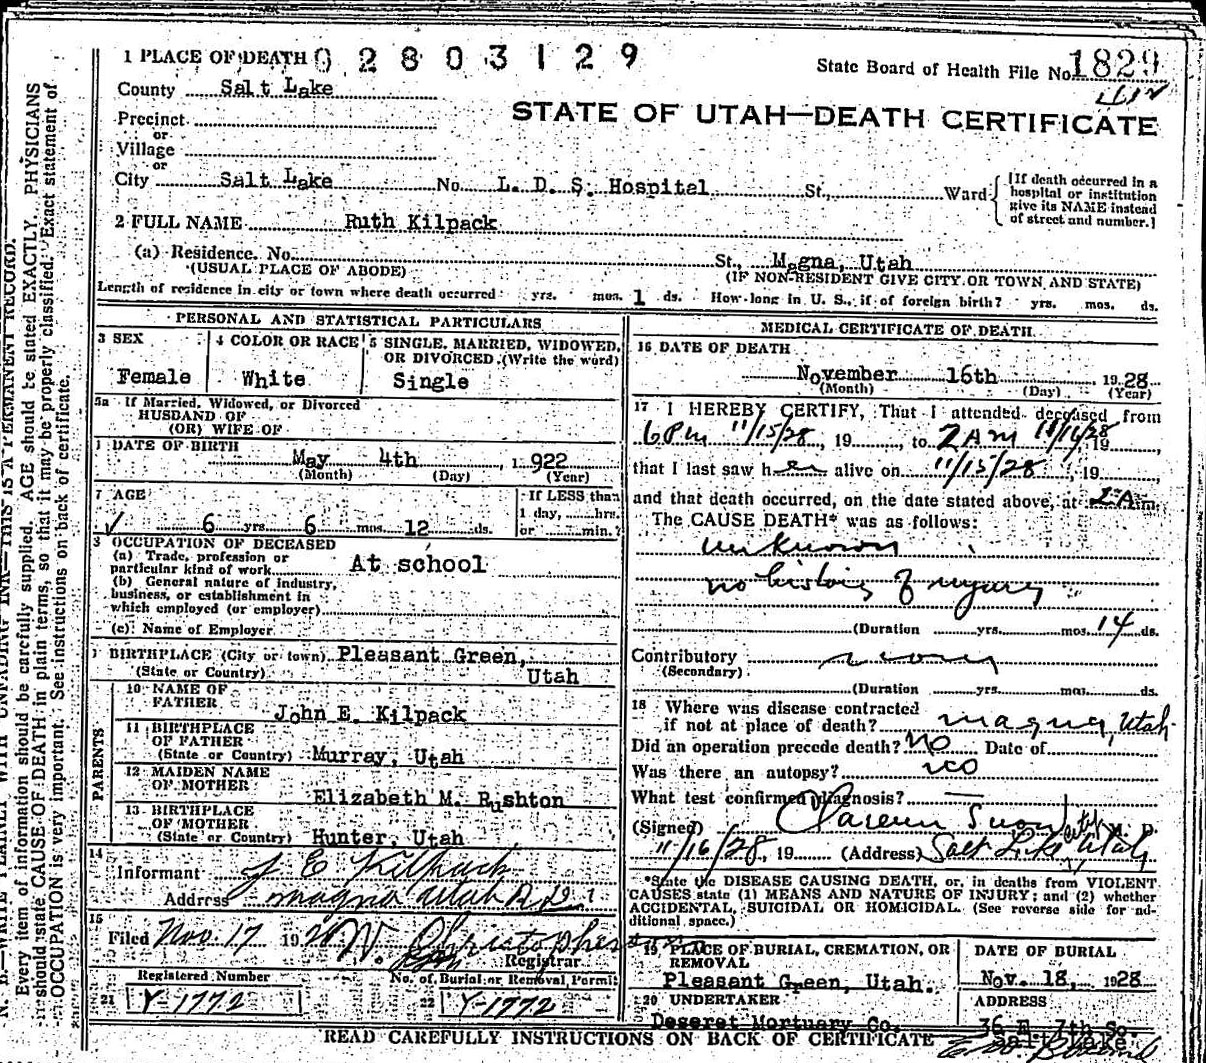 1 PLACE OF DEATH 0 2 8 0 3 1 2 9
State Board of Health File No. 1829
County Salt Lake
STATE OF UTAH—DEATH CERTIFICATE
Precinct
or
Village
or
City Salt Lake No. L. D. S. Hospital St., Ward
[If death occurred in a
hospital or institution
give its NAME instead
of street and number.]
2 FULL NAME Ruth Kilpack
(a) Residence. No. St., Magna, Utah
(USUAL PLACE OF ABODE) (IF NON-RESIDENT GIVE CITY OR TOWN AND STATE)
Length of residence in city or town where death occurred yrs. mos. 1 ds. How long in U. S., if of foreign birth? yrs. mos. ds.
PERSONAL AND STATISTICAL PARTICULARS
3 SEX
Female
4 COLOR OR RACE
White
5 SINGLE, MARRIED, WIDOWED,
OR DIVORCED (Write the word)
Single
5a If Married, Widowed, or Divorced
HUSBAND OF
(OR) WIFE OF
DATE OF BIRTH
May 4th 1922
(Month) (Day) (Year)
7 AGE
6 yrs. 6 mos. 12 ds.
If LESS than
1 day, hrs.
or min.?
OCCUPATION OF DECEASED
(a) Trade, profession or
particular kind of work At school
(b) General nature of industry,
business, or establishment in
which employed (or employer)
(c) Name of Employer
BIRTHPLACE (City or town) Pleasant Green,
(State or Country) Utah
PARENTS
10 NAME OF
FATHER
John E. Kilpack
11 BIRTHPLACE
OF FATHER
(State or Country) Murray, Utah
12 MAIDEN NAME
OF MOTHER
Elizabeth M. Rushton
13 BIRTHPLACE
OF MOTHER
(State or Country) Hunter, Utah
14
Informant J E Kilpack
Address Magna Utah R.D. 1
15
Filed Nov. 17 1928 W. Christopherson
Registrar
Registered Number
21 Y-1772
No. of Burial or Removal Permit
22 Y-1772
MEDICAL CERTIFICATE OF DEATH
16 DATE OF DEATH
November 16th 1928
(Month) (Day) (Year)
17 I HEREBY CERTIFY, That I attended deceased from
6 Pm 11/15/28, 19 , to 2 Am 11/16/28 19 ,
that I last saw her alive on 11/15/28, 19 ,
and that death occurred, on the date stated above, at 2 A m.
The CAUSE DEATH* was as follows:
unknown
no history of injury
(Duration yrs. mos. 14 ds.
Contributory none
(Secondary)
(Duration yrs. mos. ds.
18 Where was disease contracted
if not at place of death? Magna, Utah
Did an operation precede death? No Date of
Was there an autopsy? no
What test confirmed diagnosis? —
(Signed) Clarence Snow M. D.
11/16/28, 19 (Address) Salt Lake City Utah
*State the DISEASE CAUSING DEATH, or, in deaths from VIOLENT
CAUSES state (1) MEANS AND NATURE OF INJURY; and (2) whether
ACCIDENTAL, SUICIDAL OR HOMICIDAL. (See reverse side for ad-
ditional space.)
19 PLACE OF BURIAL, CREMATION, OR
REMOVAL
Pleasant Green, Utah.
DATE OF BURIAL
Nov. 18, 1928
20 UNDERTAKER
Deseret Mortuary Co.
ADDRESS
36 E. 7th So.
Salt Lake
READ CAREFULLY INSTRUCTIONS ON BACK OF CERTIFICATE
N. B.—WRITE PLAINLY WITH UNFADING INK—THIS IS A PERMANENT RECORD.
Every item of information should be carefully supplied. AGE should be stated EXACTLY. PHYSICIANS
should state CAUSE OF DEATH in plain terms, so that it may be properly classified. Exact statement of
OCCUPATION is very important. See instructions on back of certificate.